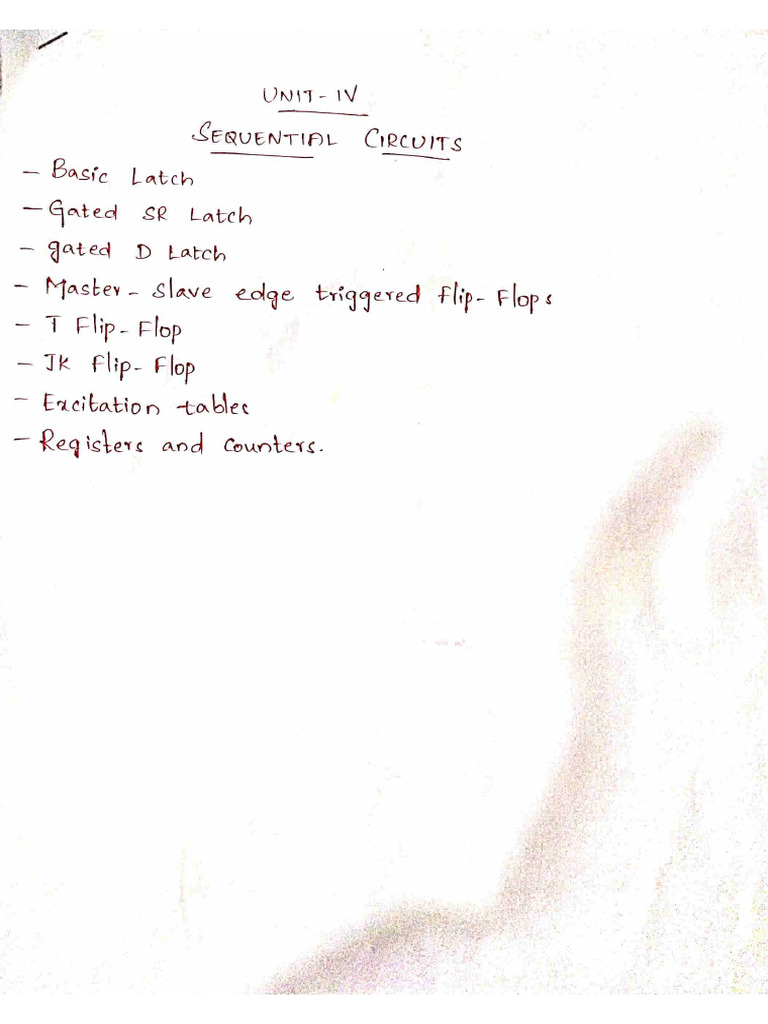 UNIT-IV
SEQUENTIAL CIRCUITS
- Basic Latch
- Gated SR Latch
- gated D Latch
- Master-slave edge triggered flip-Flops
- T Flip-Flop
- JK flip-Flop
- Excitation tables
- Registers and counters.